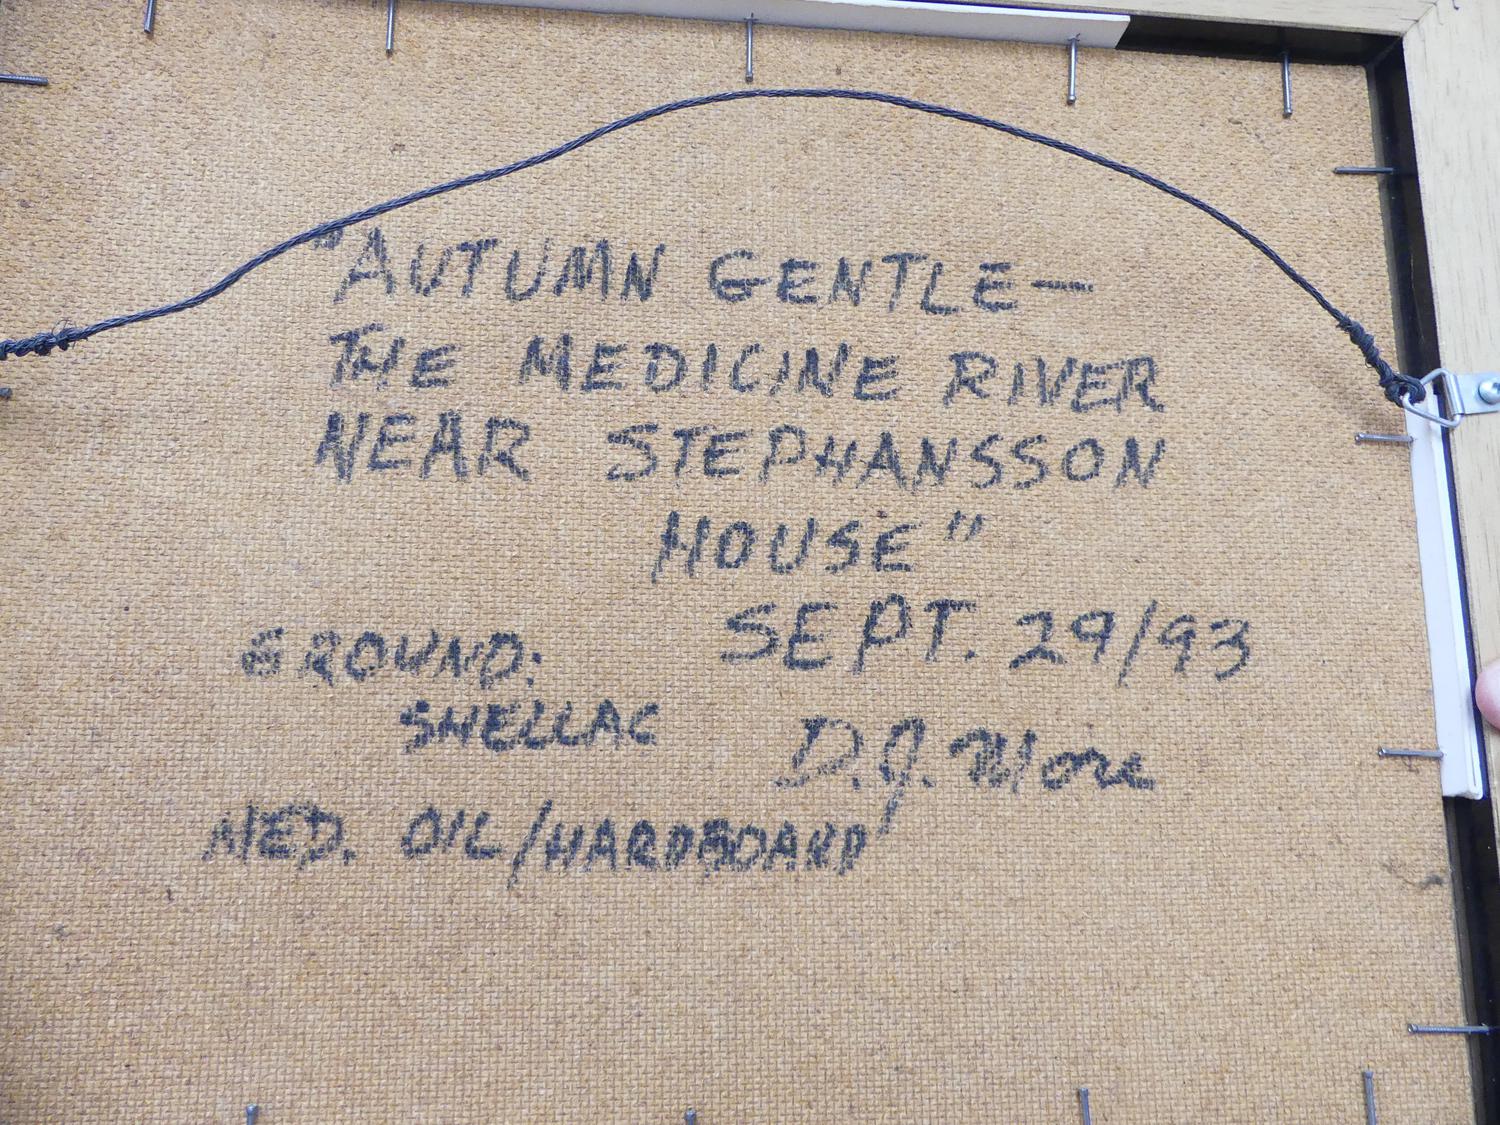 "AUTUMN GENTLE—
THE MEDICINE RIVER
NEAR STEPHANSSON
HOUSE"
SEPT. 29/93
GROUND:
SHELLAC
D.J. More
MED. OIL/HARDBOARD